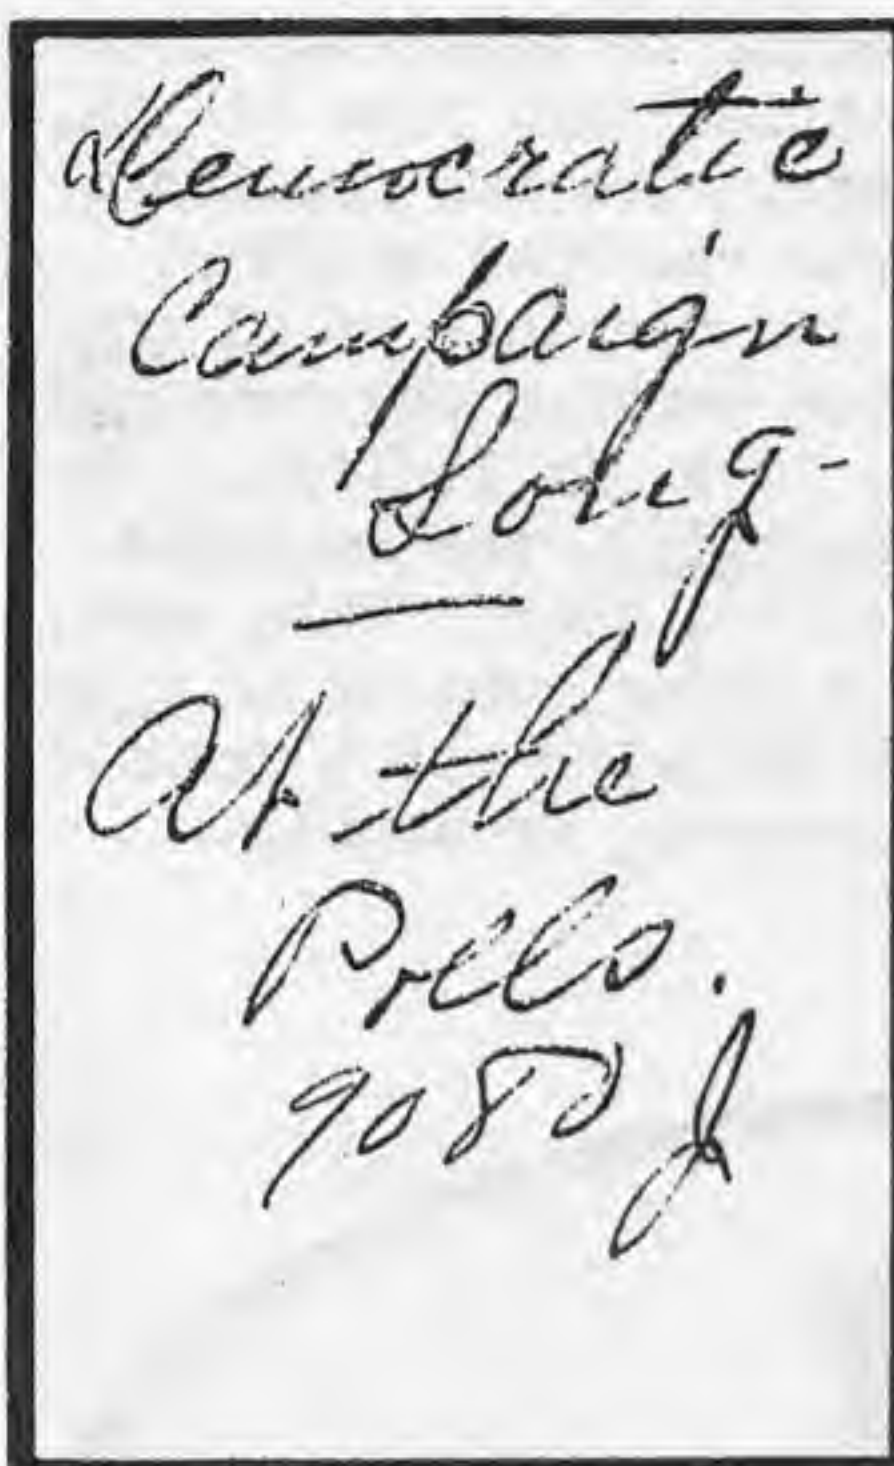 Democratic
Campaign
Song-
At the
Polls.
9080 J